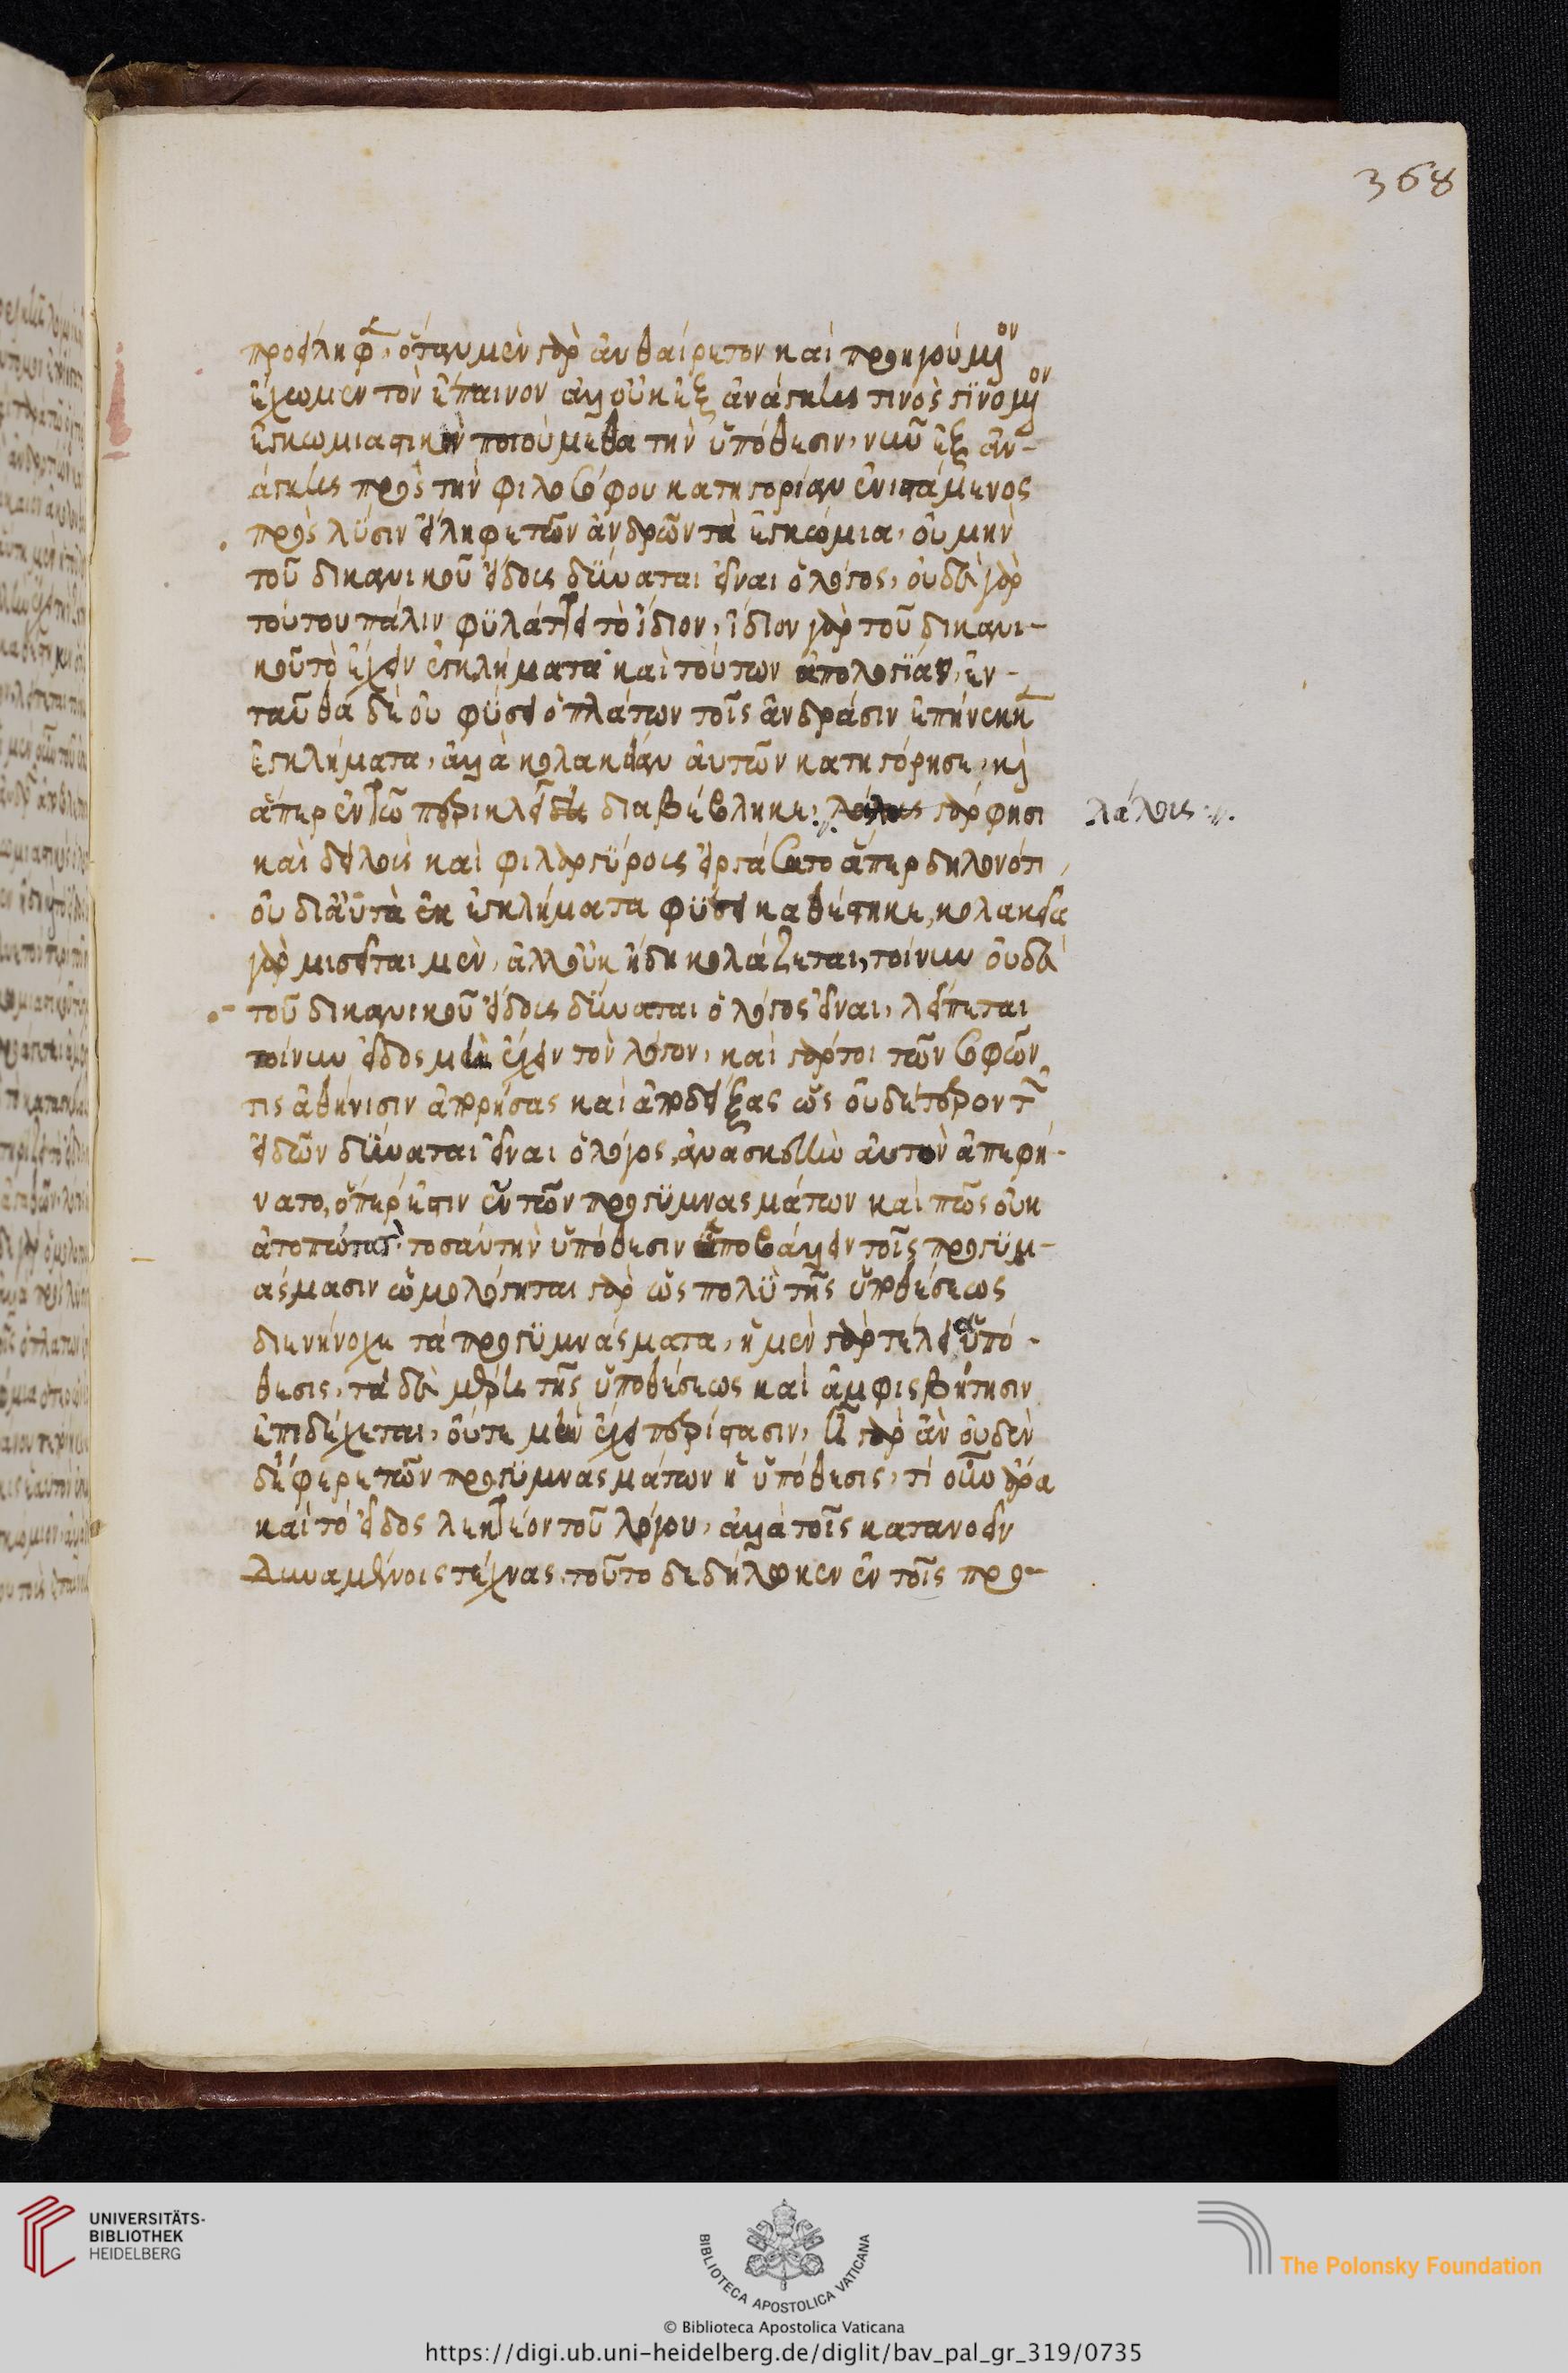 368
προείληφε, ὅταν μὲν γὰρ ἀυθαίρετον καὶ προηγούμενον
ἔχωμεν τὸν ἔπαινον ἀλλ' οὐκ ἐξ ἀνάγκης τινὸς γινόμενον
ἐγκωμιαστικὴν ποιούμεθα τὴν ὑπόθεσιν, νῦν ἐξ ἀν-
άγκης πρὸς τὴν φιλοσόφου κατηγορίαν ἐνιστάμενος
πρὸς λύσιν εἴληφε τῶν ἀνδρῶν τὰ ἐγκώμια, οὐ μὴν
τοῦ δικανικοῦ εἴδους δύναται εἶναι ὁ λόγος, οὐδὲ γὰρ
τούτου πάλιν φυλάττει τὸ ἴδιον, ἴδιον γὰρ τοῦ δικανι-
κοῦ τὸ ἔχειν ἐγκλήματα καὶ τούτων ἀπολογίαν, ἐν-
ταῦθα δὲ οὐ φύσει ὁ πλάτων τοῖς ἀνδράσιν ἐπήνεγκε
ἐγκλήματα, ἀλλὰ κολακείαν αὐτῶν κατηγόρησε, καὶ
ἅπερ ἐν τῶ περικλεῖ διαβέβληκε, γὰρ φησι λάλους
καὶ δειλοὺς καὶ φιλαργύρους εἰργάσατο ἅπερ δηλονότι
οὐ δι' αὐτὰ ἐγκλήματα φύσει καθέστηκε, κολακεία
γὰρ μισεῖται μὲν, ἀλλ' οὐκ ἤδη κολάζεται, τοίνυν οὐδὲ
τοῦ δικανικοῦ εἴδους δύναται ὁ λόγος εἶναι, λείπεται
τοίνυν εἶδος μὴ ἔχειν τὸν λόγον, καὶ γάρτοι τῶν σοφῶν
τις ἀθήνησιν ἀπορήσας καὶ ἀποδείξας ὡς οὐδέτερον τῶν
εἰδῶν δύναται εἶναι ὁ λόγος, ἀνασκευὴν αὐτὸν ἀπεφή-
νατο, ὅπερ ἐστὶν ἓν τῶν προγυμνασμάτων καὶ πῶς οὐκ
ἀτοπώτατον τοσαύτην ὑπόθεσιν ὑποβάλλειν τοῖς προγυμ-
άσμασιν ὡμολόγηται γὰρ ὡς πολὺ τῆς ὑποθέσεως
διενήνοχε τὰ προγυμνάσματα, ἡ μὲν γὰρ τελεία ὑπό-
θεσις, τὰ δὲ μέρη τῆς ὑποθέσεως καὶ ἀμφισβήτησιν
ἐπιδέχεται, οὔτε μὴν ἔχει περίστασιν, ἢ γὰρ ἂν οὐδὲν
διέφερε τῶν προγυμνασμάτων ἡ ὑπόθεσις, τί οὖν ἄρα
καὶ τὸ εἶδος λεκτέον τοῦ λόγου, ἀλλὰ τοῖς κατανοεῖν
δυναμένοις τέχνας τοῦτο δεδήλωκεν ἐν τοῖς προ-
UNIVERSITÄTS-
BIBLIOTHEK
HEIDELBERG
BIBLIOTECA APOSTOLICA VATICANA
The Polonsky Foundation
© Biblioteca Apostolica Vaticana
https://digi.ub.uni-heidelberg.de/diglit/bav_pal_gr_319/0735